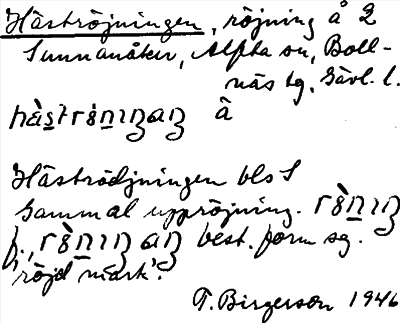 Häströjningen, röjning å 2
Sunnanåker, Alfta sn, Boll-
näs tg, Gävl. l.
å
Häströdjningen bls S
Gammal uppröjning.
f., best. form sg.
'röjd mark'.
T. Birgerson 1946